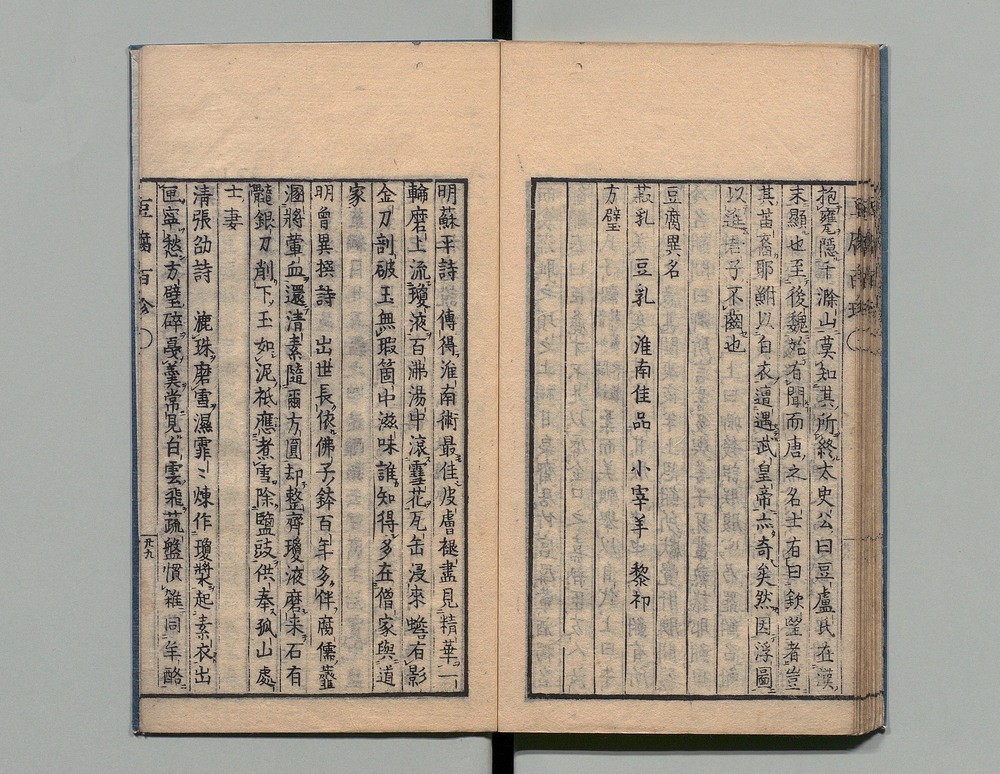 抱甕隱于滁山莫知其所終太史公曰豆盧氏在漢
末顯也至後魏始有聞而唐之名士有曰欽望者豈
其苗裔耶鮒以白衣遭遇武皇帝亦奇矣然因浮圖
以進君子不齒也
豆腐異名
菽乳 豆乳 淮南佳品 小宰羊 黎祁
方璧
明蘇平詩 傳得淮南術最佳皮膚褪盡見精華一
輪磨上流瓊液百沸湯中滾雪花瓦缶浸來蟾有影
金刀剖破玉無瑕箇中滋味誰知得多在僧家與道
家
明曾異撰詩 出世長依佛子鉢百年多伴腐儒虀
溷將葷血還清素隨爾方圓却整齊瓊液磨来石有
髓銀刀削下玉如泥祇應煮雪除鹽豉供奉孤山處
士妻
清張劭詩 漉珠磨雪濕霏〻煉作瓊漿起素衣出
匣寧愁方璧碎戞羹常見白雲飛蔬盤慣雑同羊酪
豆腐百珍
廿九